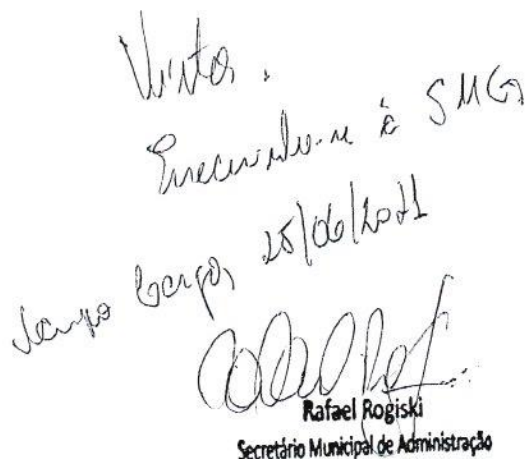 Vistos.
Encaminhe-se à SMG
Campo Largo, 25/06/2021
Rafael Rogiski
Secretário Municipal de Administração